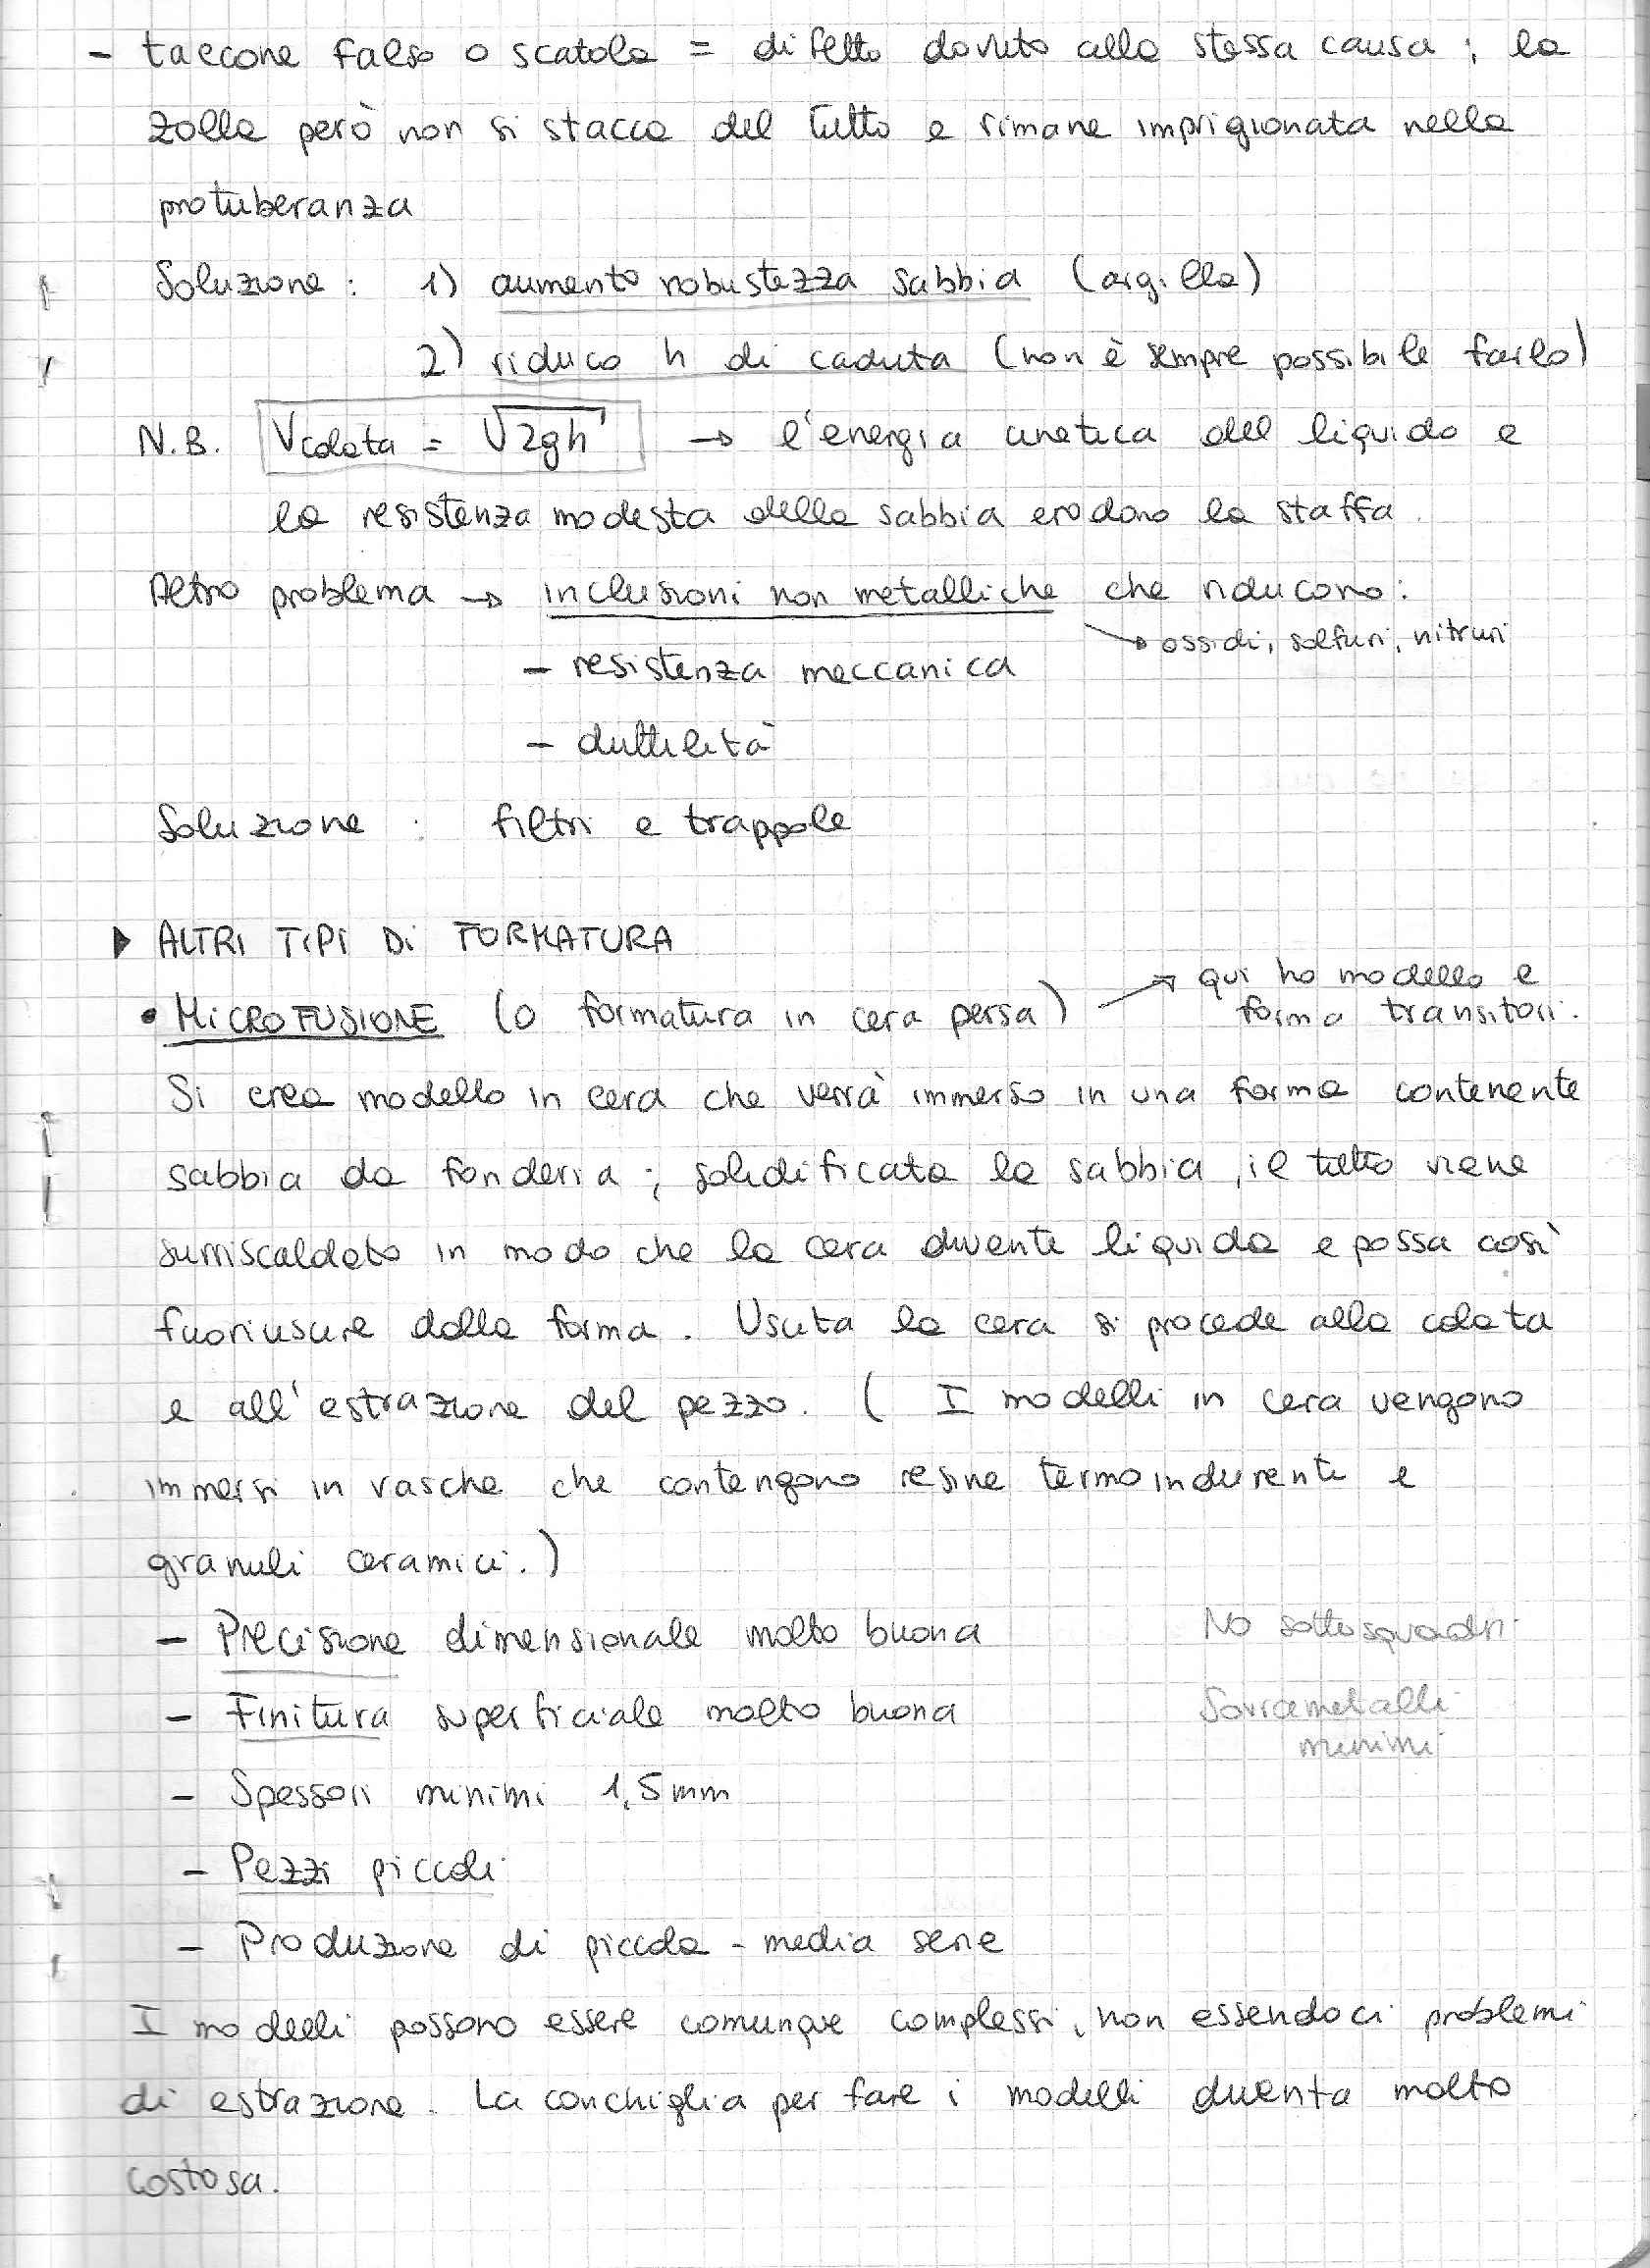 - taccone falso o scatola = difetto dovuto alla stessa causa ; la
zolla però non si stacca del tutto e rimane imprigionata nella
protuberanza
Soluzione : 1) aumento robustezza sabbia (argilla)
2) riduco h di caduta (non è sempre possibile farlo)
N.B. Vcolata = √2gh → l'energia cinetica del liquido e
la resistenza modesta della sabbia erodono la staffa.
Altro problema → inclusioni non metalliche che riducono :
→ ossidi, solfuri, nitruri
- resistenza meccanica
- duttilità
Soluzione : filtri e trappole
▶ ALTRI TIPI DI FORMATURA
• MICROFUSIONE (o formatura in cera persa) → qui ho modello e
forma transitori.
Si crea modello in cera che verrà immerso in una forma contenente
sabbia da fonderia ; solidificata la sabbia, il tutto viene
surriscaldato in modo che la cera diventi liquida e possa così
fuoriuscire dalla forma. Uscita la cera si procede alla colata
e all'estrazione del pezzo. ( I modelli in cera vengono
immersi in vasche che contengono resine termoindurenti e
granuli ceramici.)
- Precisione dimensionale molto buona No sottosquadri
- Finitura superficiale molto buona Sovrametalli
minimi
- Spessori minimi 1,5mm
- Pezzi piccoli
- Produzione di piccola - media serie
I modelli possono essere comunque complessi, non essendoci problemi
di estrazione. La conchiglia per fare i modelli diventa molto
costosa.